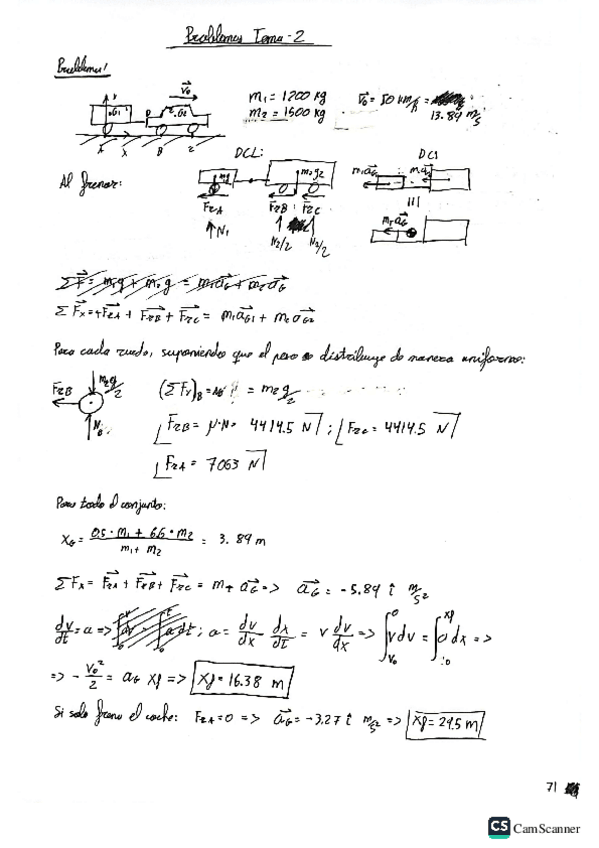 Problemas Tema-2
Problema 1
V0
m1 = 1200 kg
m2 = 1500 kg
V0 = 50 km/h =
13.89 m/s
A x B 2
DCL:
DC1
Al frenar:
m2g
m1aG
FRA FRB FRC
N1 N2/2 N2/2
|||
mTaG
ΣF = m1g + m2g = m1aG + m2aG
ΣFx = FRA + FRB + FRC = m1aG1 + m2aG2
Para cada rueda, suponiendo que el peso se distribuye de manera uniforme:
FRB m2g/2 (ΣFy)B = NB = m2g/2
NB
FRB = μ·N = 4414.5 N ; FRC = 4414.5 N
FRA = 7063 N
Para todo el conjunto:
XG = 0.5·m1 + 6.6·m2 / m1 + m2 = 3.89 m
ΣFx = FRA + FRB + FRC = mT aG => aG = -5.89 i m/s2
dv/dt = a => ∫dv = ∫a dt ; a = dv/dx dx/dt = v dv/dx => ∫v dv = ∫a dx =>
=> - V0²/2 = aG Xf => Xf = 16.38 m
Si solo frena el coche: FRA = 0 => aG = -3.27 i m/s2 => Xf = 29.5 m
71
CS CamScanner